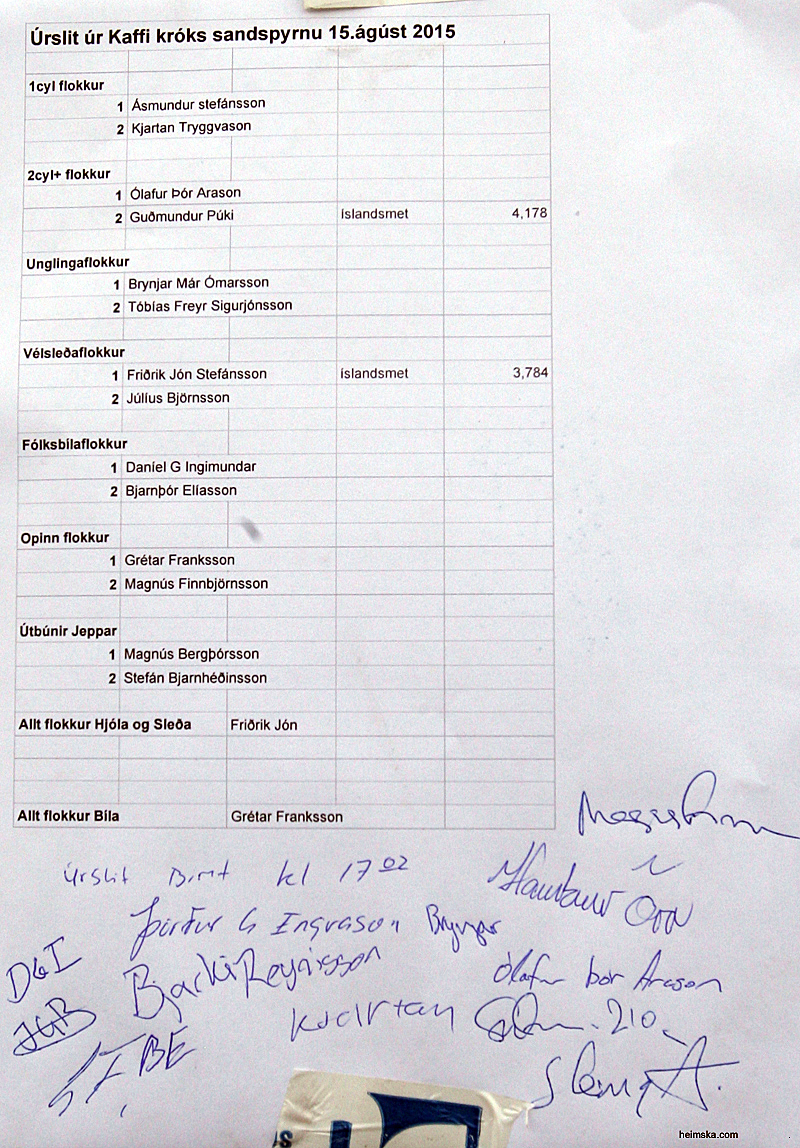 Úrslit úr Kaffi króks sandspyrnu 15.ágúst 2015
1cyl flokkur
1 Ásmundur stefánsson
2 Kjartan Tryggvason
2cyl+ flokkur
1 Ólafur Þór Arason
2 Guðmundur Púki íslandsmet 4,178
Unglingaflokkur
1 Brynjar Már Ómarsson
2 Tóbías Freyr Sigurjónsson
Vélsleðaflokkur
1 Friðrik Jón Stefánsson íslandsmet 3,784
2 Júlíus Björnsson
Fólksbílaflokkur
1 Daníel G Ingimundar
2 Bjarnþór Elíasson
Opinn flokkur
1 Grétar Franksson
2 Magnús Finnbjörnsson
Útbúnir Jeppar
1 Magnús Bergþórsson
2 Stefán Bjarnhéðinsson
Allt flokkur Hjóla og Sleða Friðrik Jón
Allt flokkur Bíla Grétar Franksson
Úrslit Birt kl 17 02
G Ingvason Brynjar
DGI
Bjarki Reynisson
Ólafur þór Arason
JGB
Kjartan
210
BE
heimska.com